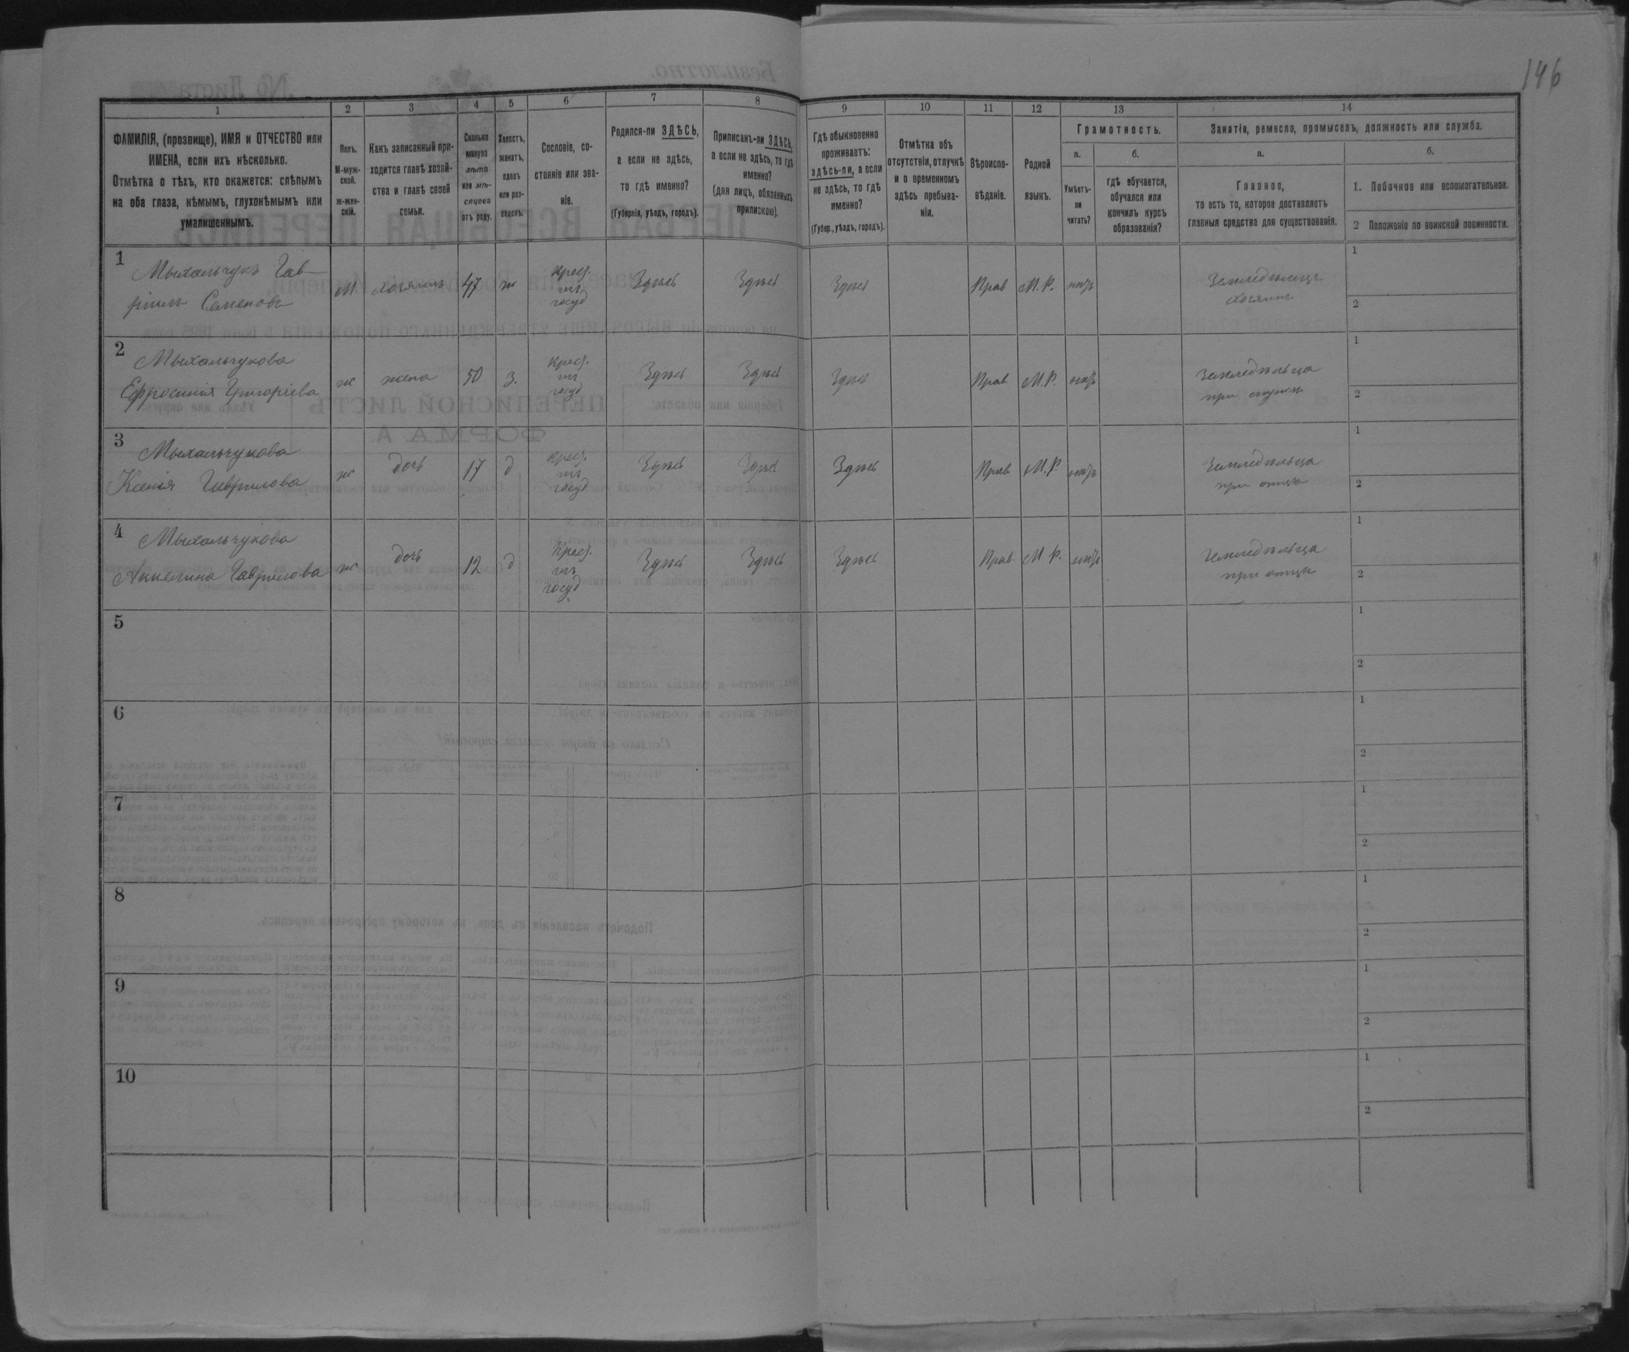 146
1
2
3
4
5
6
7
8
9
10
11
12
13
14
ФАМИЛІЯ, (прозвище), ИМЯ и ОТЧЕСТВО или
ИМЕНА, если ихъ нѣсколько.
Отмѣтка о тѣхъ, кто окажется: слѣпымъ
на оба глаза, нѣмымъ, глухонѣмымъ или
умалишеннымъ.
Полъ.
М-муж-
ской.
ж-жен-
скій.
Какъ записанный при-
ходится главѣ хозяй-
ства и главѣ своей
семьи.
Сколько
минуло
лѣтъ
или мѣ-
сяцевъ
отъ роду.
Холостъ,
женатъ,
вдовъ
или раз-
веденъ.
Сословіе, со-
стояніе или зва-
ніе.
Родился-ли ЗДѢСЬ,
а если не здѣсь,
то гдѣ именно?
(Губернія, уѣздъ, городъ).
Приписанъ-ли ЗДѢСЬ,
а если не здѣсь, то гдѣ
именно?
(для лицъ, обязанныхъ
припискою).
Гдѣ обыкновенно
проживаетъ:
здѣсь-ли, а если
не здѣсь, то гдѣ
именно?
(Губер., уѣздъ, городъ).
Отмѣтка объ
отсутствіи, отлучкѣ
и о временномъ
здѣсь пребыва-
ніи.
Вѣроиспо-
вѣданіе.
Родной
языкъ.
Грамотность.
а.
б.
Умѣетъ-
ли
читать?
гдѣ обучается,
обучался или
кончилъ курсъ
образованія?
Занятіе, ремесло, промыселъ, должность или служба.
а.
б.
Главное,
то есть то, которое доставляетъ
главныя средства для существованія.
1. Побочное или вспомогательное.
2 Положеніе по воинской повинности.
1
Мыхальчукъ Гав-
ріилъ Семеновъ
М хозяинъ 47 ж
крест.
изъ
госуд
Здѣсь Здѣсь Здѣсь Прав М.Р. нѣтъ
Земледѣлецъ
хозяинъ
1
2
2
Мыхальчукова
Ефросинія Григоріева
ж жена 50 з.
крест.
изъ
госуд
Здѣсь Здѣсь Здѣсь Прав М.Р. нѣтъ
Земледѣльца
при мужѣ
1
2
3
Мыхальчукова
Ксенія Гаврилова
ж дочь 17 д
крест.
изъ
госуд
Здѣсь Здѣсь Здѣсь Прав М.Р. нѣтъ
Земледѣльца
при отцѣ
1
2
4
Мыхальчукова
Гаврилова
ж дочь 12 д
крест.
изъ
госуд
Здѣсь Здѣсь Здѣсь Прав М.Р. нѣтъ
Земледѣльца
при отцѣ
1
2
5
1
2
6
1
2
7
1
2
8
1
2
9
1
2
10
1
2